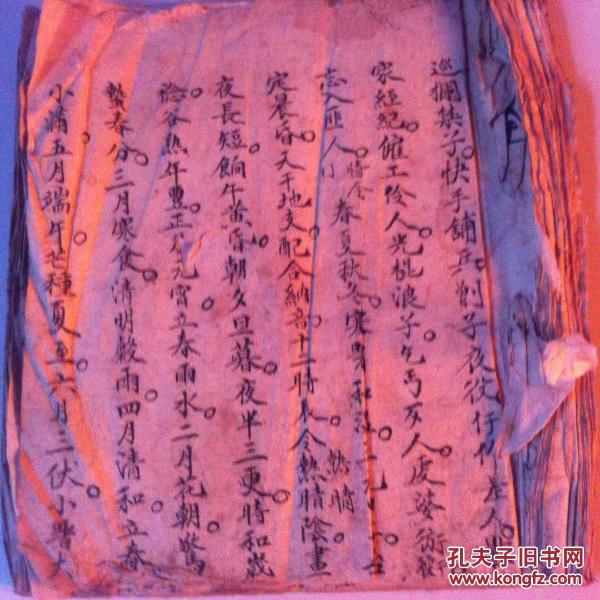 巡捫禁子快手鋪兵創子夜役仵作差人
家經紀。催工伶人光棍浪子乞丐歹人虔婆術
忘八匪人 時令 春夏秋冬寒暑和
定晨昏天干地支配合納音十二時辰冷熱晴陰晝
夜長短餉午黄昏朝夕旦暮夜半三更時和歲
稔谷熟年豐。正月元宵立春雨水。二月花朝。驚
蟄春分。三月寒食清明穀雨。四月清和立春
小滿五月端午芒種夏至。六月三伏小暑大
孔夫子旧书网
www.kongfz.com